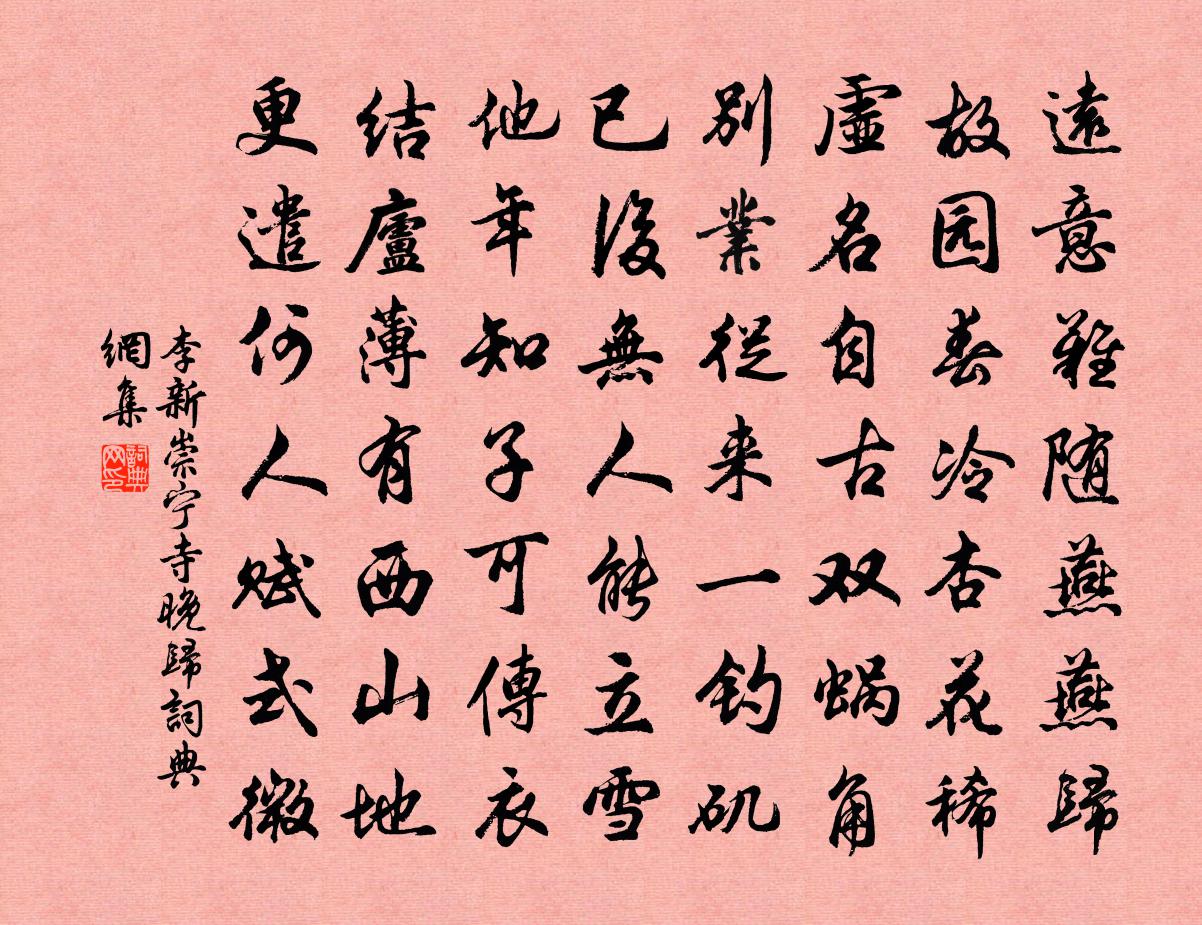 遠意難随燕燕歸
故园春冷杏花稀
虛名自古双蜗角
别業從来一钓矶
已後無人能立雪
他年知子可傳衣
结廬薄有西山地
更遣何人赋式微
李新崇宁寺晚歸詞典
網集
詞典网印